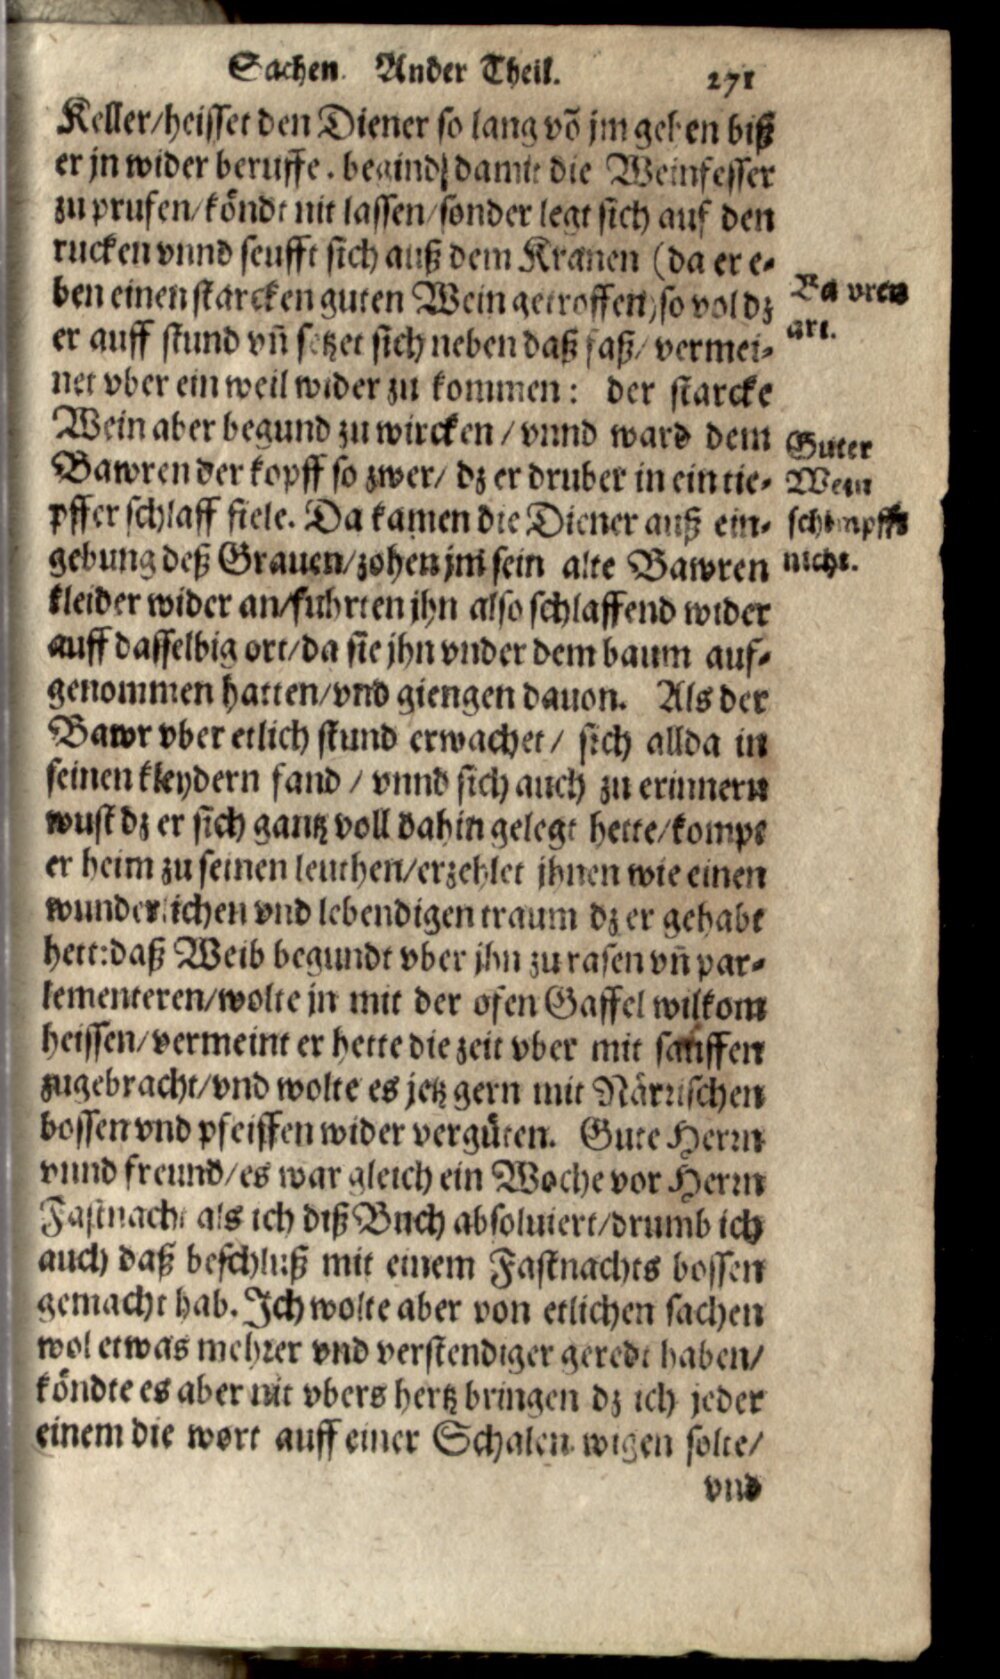 Sachen. Ander Theil. 271
Keller/heisset den Diener so lang võ jm gehen biß
er jn wider beruffe. begindt damit die Weinfesser
zu prufen/köndt nit lassen/sonder legt sich auf den
rucken vnndseufft sich auß dem Kranen (da er e-
ben einen starcken guten Wein getroffen) so vol dz
er auff stund vñ setzet sich neben daß faß/ vermei-
net vber ein weil wider zu kommen: der starcke
Wein aber begund zu wircken / vnnd ward dem
Bawren der kopff so zwer/ dz er druber in ein tie-
pffer schlaff fiele. Da kamen die Diener auß ein-
gebung deß Grauen/zohen jm sein alte Bawren
kleider wider an/fuhrten jhn also schlaffend wider
auff dasselbig ort/da sie jhn vnder dem baum auf-
genommen hatten/vnd giengen dauon. Als der
Bawr vber etlich stund erwachet/ sich allda in
seinen kleydern fand / vnnd sich auch zu erinnern
wust dz er sich gantz voll dahin gelegt hette/kompt
er heim zu seinen leuthen/erzehlet jhnen wie einen
wunderlichen vnd lebendigen traum dz er gehabt
hett:daß Weib begundt vber jhn zu rasen vñ par-
lementeren/wolte jn mit der ofen Gaffel wilkom
heissen/vermeint er hette die zeit vber mit sauffen
zugebracht/vnd wolte es jetz gern mit Närrischen
bossen vnd pfeiffen wider vergüten. Gute Herrn
vnnd freund/es war gleich ein Woche vor Herrn
Fastnacht als ich diß Buch absoluiert/drumb ich
auch daß beschluß mit einem Fastnachts bossen
gemacht hab. Ich wolte aber von etlichen sachen
wol etwas mehrer vnd verstendiger geredt haben/
köndte es aber nit vbers hertz bringen dz ich jeder
einem die wort auff einer Schalen wigen solte/
vnd
Bawren
art.
Guter
Wein
schimpfft
nicht.